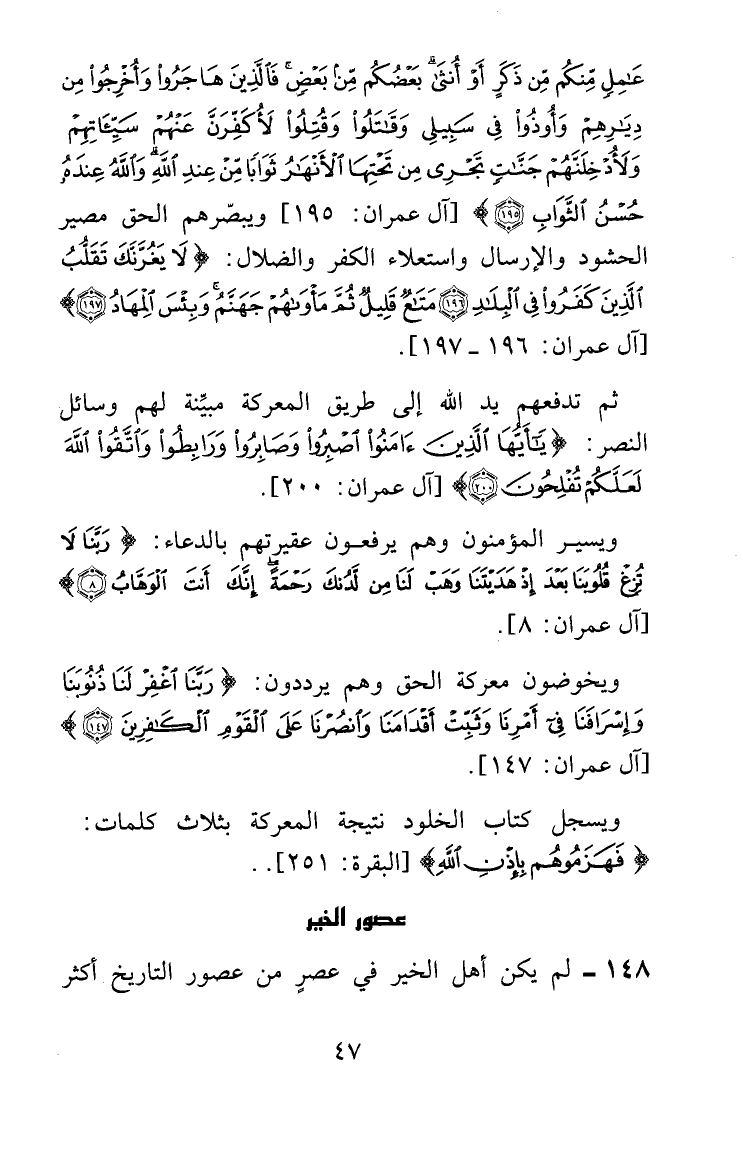 عَٰمِلٍ مِّنكُم مِّن ذَكَرٍ أَوْ أُنثَىٰۖ بَعْضُكُم مِّنۢ بَعْضٍۖ فَٱلَّذِينَ هَاجَرُواْ وَأُخْرِجُواْ مِن
دِيَٰرِهِمْ وَأُوذُواْ فِى سَبِيلِى وَقَٰتَلُواْ وَقُتِلُواْ لَأُكَفِّرَنَّ عَنْهُمْ سَيِّـَٔاتِهِمْ
وَلَأُدْخِلَنَّهُمْ جَنَّٰتٍ تَجْرِى مِن تَحْتِهَا ٱلْأَنْهَٰرُ ثَوَابًا مِّنْ عِندِ ٱللَّهِۗ وَٱللَّهُ عِندَهُۥ
حُسْنُ ٱلثَّوَابِ ﴿١٩٥﴾ ﴾ [آل عمران: ١٩٥] ويبصّرهم الحق مصير
الحشود والإرسال واستعلاء الكفر والضلال: ﴿ لَا يَغُرَّنَّكَ تَقَلُّبُ
ٱلَّذِينَ كَفَرُواْ فِى ٱلْبِلَٰدِ ﴿١٩٦﴾ مَتَٰعٌ قَلِيلٌ ثُمَّ مَأْوَىٰهُمْ جَهَنَّمُۚ وَبِئْسَ ٱلْمِهَادُ ﴿١٩٧﴾ ﴾
[آل عمران: ١٩٦ ـ ١٩٧].
ثم تدفعهم يد الله إلى طريق المعركة مبيِّنة لهم وسائل
النصر: ﴿ يَٰٓأَيُّهَا ٱلَّذِينَ ءَامَنُواْ ٱصْبِرُواْ وَصَابِرُواْ وَرَابِطُواْ وَٱتَّقُواْ ٱللَّهَ
لَعَلَّكُمْ تُفْلِحُونَ ﴿٢٠٠﴾ ﴾ [آل عمران: ٢٠٠].
ويسير المؤمنون وهم يرفعون عقيرتهم بالدعاء: ﴿ رَبَّنَا لَا
تُزِغْ قُلُوبَنَا بَعْدَ إِذْ هَدَيْتَنَا وَهَبْ لَنَا مِن لَّدُنكَ رَحْمَةًۚ إِنَّكَ أَنتَ ٱلْوَهَّابُ ﴿٨﴾ ﴾
[آل عمران: ٨].
ويخوضون معركة الحق وهم يرددون: ﴿ رَبَّنَا ٱغْفِرْ لَنَا ذُنُوبَنَا
وَإِسْرَافَنَا فِىٓ أَمْرِنَا وَثَبِّتْ أَقْدَامَنَا وَٱنصُرْنَا عَلَى ٱلْقَوْمِ ٱلْكَٰفِرِينَ ﴿١٤٧﴾ ﴾
[آل عمران: ١٤٧].
ويسجل كتاب الخلود نتيجة المعركة بثلاث كلمات:
﴿ فَهَزَمُوهُم بِإِذْنِ ٱللَّهِ ﴾ [البقرة: ٢٥١]. .
عصور الخير
١٤٨ ـ لم يكن أهل الخير في عصرٍ من عصور التاريخ أكثر
٤٧